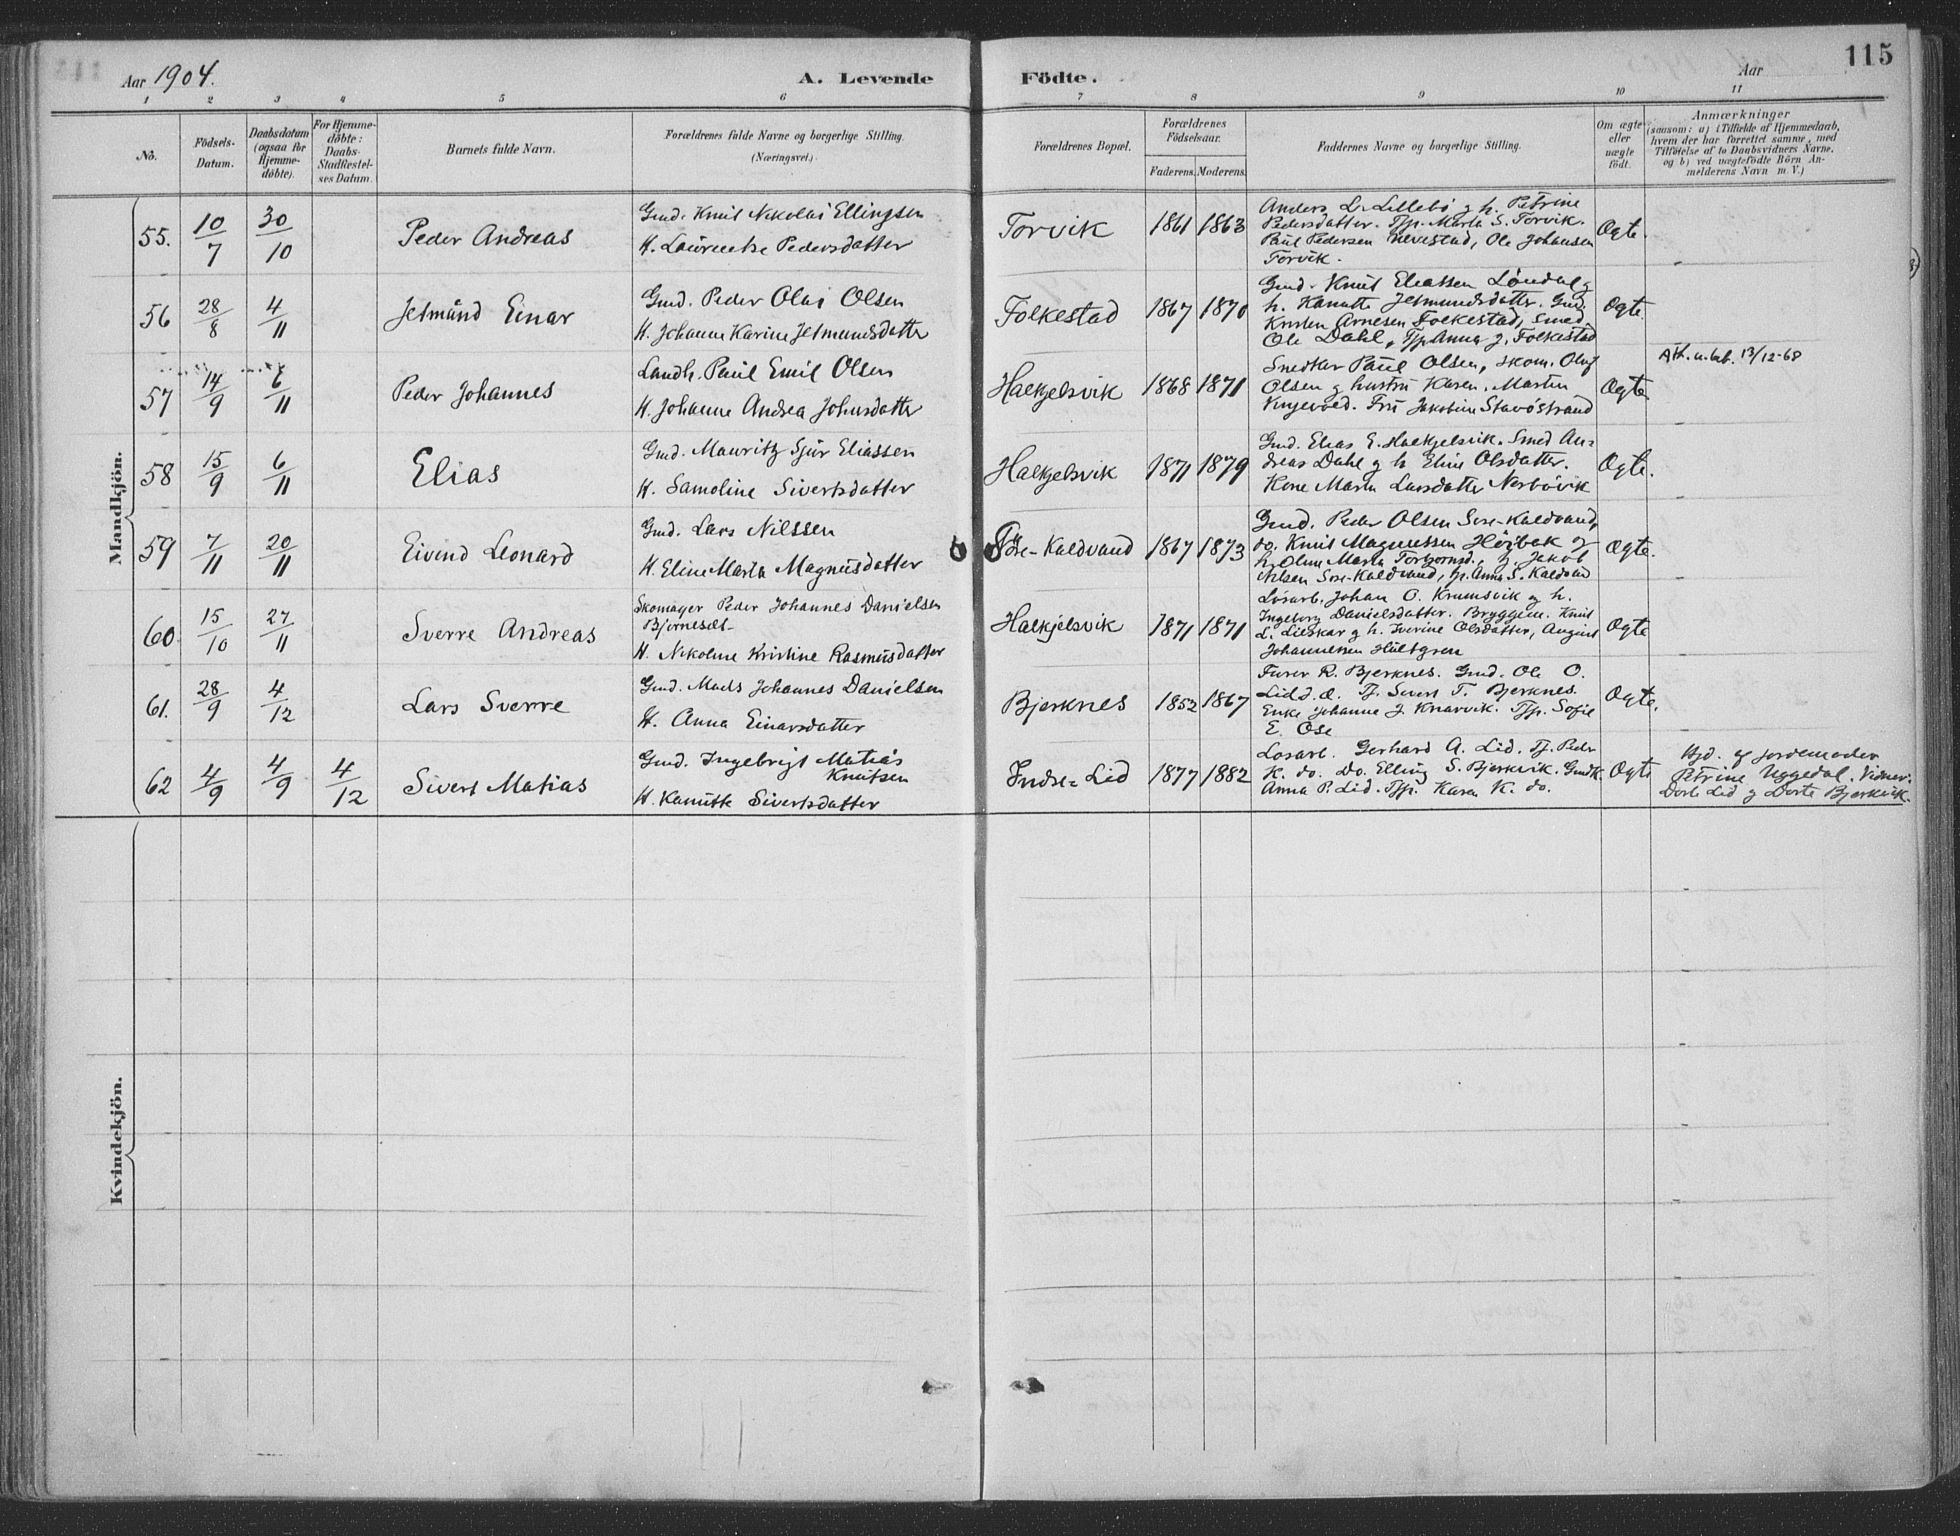 Aar 1904.
A. Levende
Födte.
Aar
115
1 2 3 4 5 6 7 8 9 10 11
No.
Födsels-
Datum.
Daabsdatum
(ogsaa for
Hjemme-
döbte).
For Hjemme-
döbte:
Daabs-
Stadfæstel-
ses Datum.
Barnets fulde Navn.
Forældrenes fulde Navne og borgerlige Stilling.
(Næringsvei).
Forældrenes Bopæl.
Forældrenes
Födselsaar.
Faderens. Moderens.
Faddernes Navne og borgerlige Stilling.
Om ægte
eller
uægte
födt.
Anmærkninger
(saasom: a) i Tilfælde af Hjemmedaab,
hvem der har forrettet samme, med
Tilföielse af to Daabsvidners Navne.
og b) ved uægtefödte Börn An-
melderens Navn m. V.)
Mandkjön.
55. 10/7 30/10
Peder Andreas
Gmd. Knut Nikolai Ellingsen
H. Laurentse Pedersdatter
Torvik
1861 1863
Anders L. Lillebö g h. Petrine
Pedersdatter. Tjp. Marta S. Torvik.
Paul Pedersen Ulvestad, Ole Johansen
Torvik.
Ogte.
56 28/8 4/11
Jetmund Einar
Gmd. Peder Olai Olsen
H. Johanne Karine Jetmundsdatter
Folkestad
1867 1870
Gmd. Knut Eliassen Löndal g
h. Kanutte Jetmundsdatter. Gmd.
Kristen Arnesen Folkestad, Smed
Ole Dahl, Tjp. Anna J. Folkestad
Ogte.
57 14/9 6/11
Peder Johannes
Landh. Paul Emil Olsen
H. Johanne Andrea Johnsdatter
Halkjelsvik
1868 1871
Snedker Paul Olsen, skom. Oluf
Olsen g hustru Karen. Martin
Fru Jakobine
Ogte
Att. u-beb. 13/12-68
58 15/9 6/11
Elias
Gmd. Mauritz Sjur Eliassen
H. Samoline Sivertsdatter
Halkjelsvik
1871 1879
Gmd. Elias E. Halkjelsvik. Smed An-
dreas Dahl g h Eline Olsdatter.
Kone Marta Larsdatter Nesbövik
Ogte.
59 7/11 20/11
Eivind Leonard
Gmd. Lars Nilssen
H. Eline Marta Magnusdatter
Kaldvand
1867 1873
Gmd. Peder Olsen Sore-Kaldvand,
do. Knut Magnussen Höjbak g
h. Oline Marta g. Jakob
Nilsen Sore-Kaldvand, tp. Anna S. Kaldvad
Ogte.
60 15/10 27/11
Sverre Andreas
Skomager Peder Johannes Danielsen
Björneset
H. Nikoline Kristine Rasmusdatter
Halkjelsvik
1871 1871
Lösarb. Johan O. Krumsvik g h.
Ingeborg Danielsdatter. Bryggem. Knut
L. Lieskar g h. Iverine Olsdatter, August
Johannessen Hultgren
Ogte
61. 28/9 4/12
Lars Sverre
Gmd. Mads Johannes Danielsen
H. Anna Einarsdatter
Bjerknes
1852 1867
Furer R. Bjerknes. Gmd. Ole O.
Tj. Sivert T. Bjerknes.
Enke Johanne J. Knarvik. Tjp. Sofie
E. Ose
Ogte.
62 4/9 4/9 4/12
Sivert Matias
Gmd. Ingebrigt Matias
Knutsen
H. Kanutte Sivertsdatter
Indre-Lid
1877 1882
Losarb. Gerhard A. Lid. Tj. Peder
K. do. Do. Elling S. Bjerkvik. Gmdk.
Anna P. Lid. Tjp. Karen K. do.
Ogte
Hjd. af jordemoder
Petrine Uggedal. Vidner:
Dorte Lid g Dorte Bjerkvik.
Kvindekjön.